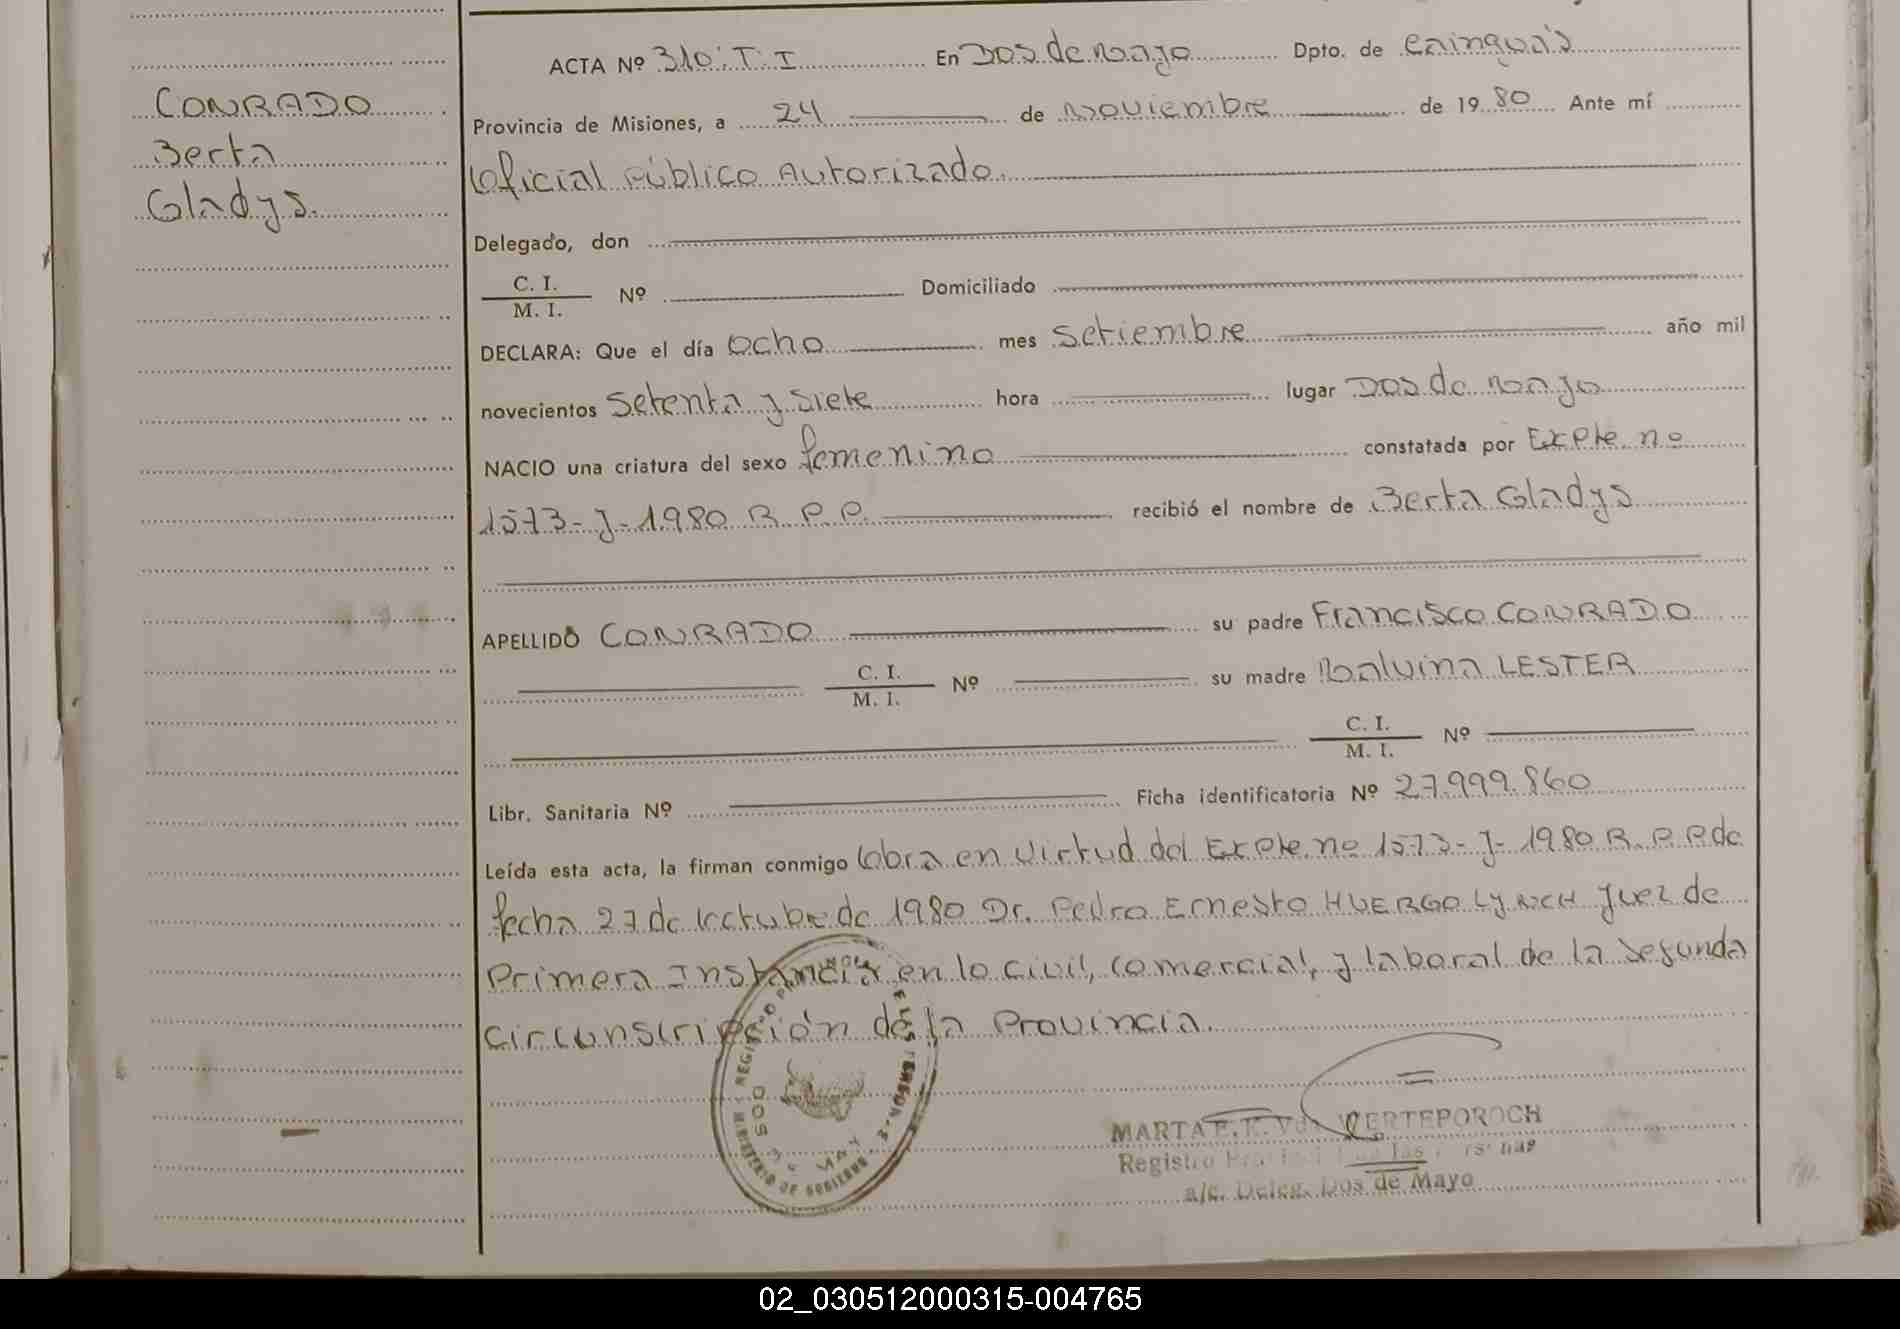 CONRADO
Berta
Gladys.
ACTA Nº 310. T. I En Dos de Mayo Dpto. de Cainguas
Provincia de Misiones, a 24 de Noviembre de 1980 Ante mí
Oficial Público Autorizado.
Delegado, don
C. I.
M. I. Nº Domiciliado
DECLARA: Que el día ocho mes Setiembre año mil
novecientos Setenta y siete hora lugar Dos de Mayo
NACIO una criatura del sexo femenino constatada por Expte. nº
1573-J-1980 R. P. P. recibió el nombre de Berta Gladys
APELLIDO CONRADO su padre Francisco CONRADO
C. I.
M. I. Nº su madre Malvina LESTER
C. I.
M. I. Nº
Libr. Sanitaria Nº Ficha identificatoria Nº 27.999.860
Leída esta acta, la firman conmigo Labra en Virtud del Expte. nº 1573-J-1980 R. P. P. de
fecha 27 de octubre de 1980 Dr. Pedro Ernesto HUERGO LYNCH Juez de
Primera Instancia en lo Civil, Comercial, y laboral de la Segunda
Circunscripción de la Provincia.
MARTA Vda. WERTEPOROCH
Registro
a/c. Deleg. Dos de Mayo
REGISTRO
MINISTERIO DE GOBIERNO
DOS DE MAYO
02_030512000315-004765